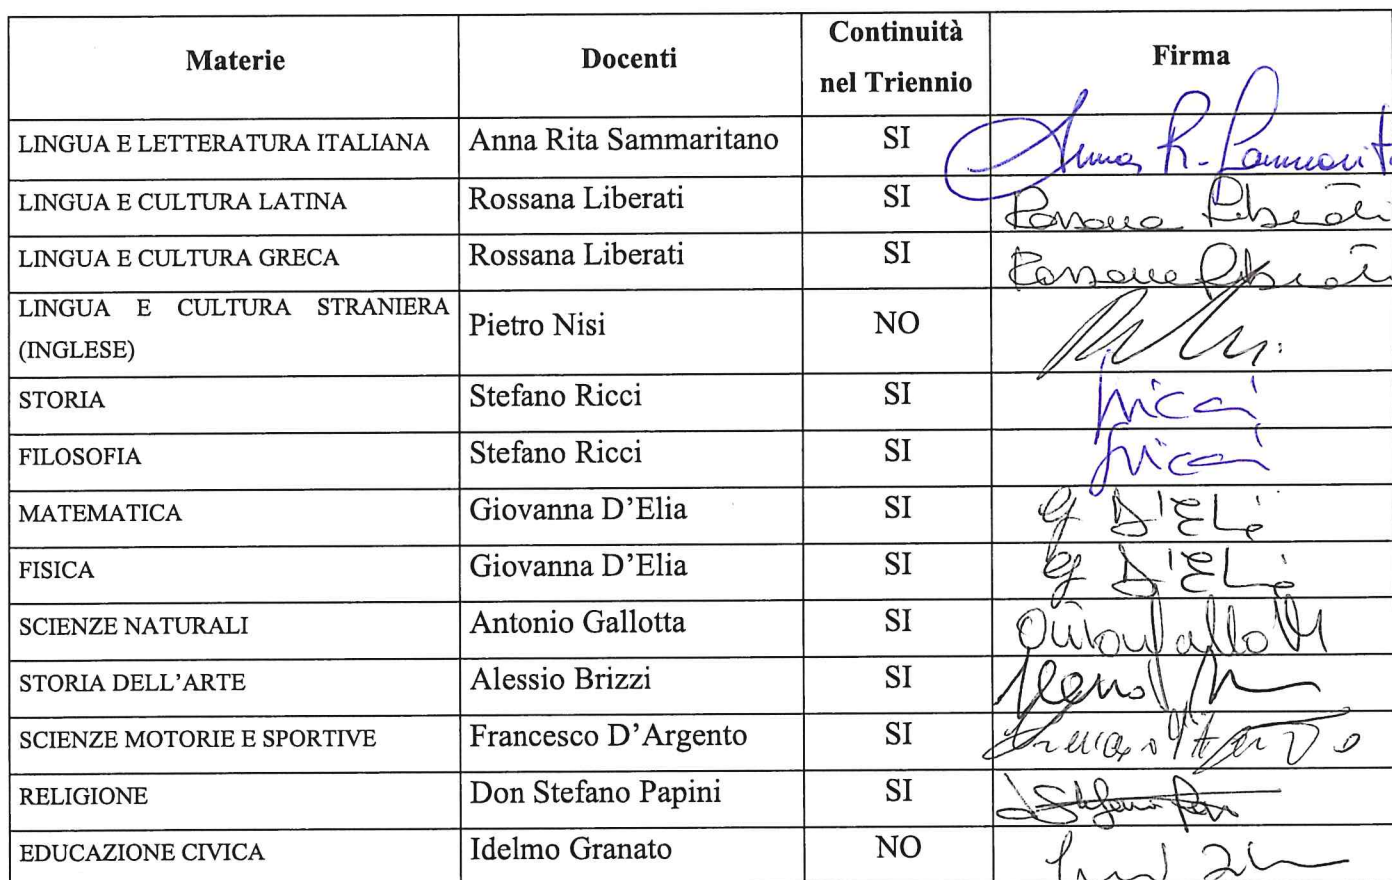 Materie Docenti Continuità nel Triennio Firma
LINGUA E LETTERATURA ITALIANA Anna Rita Sammaritano SI Anna R. Sammarita
LINGUA E CULTURA LATINA Rossana Liberati SI Rossana Liberati
LINGUA E CULTURA GRECA Rossana Liberati SI Rossana Liberati
LINGUA E CULTURA STRANIERA
(INGLESE) Pietro Nisi NO
STORIA Stefano Ricci SI SRicci
FILOSOFIA Stefano Ricci SI SRicci
MATEMATICA Giovanna D’Elia SI G D'Elia
FISICA Giovanna D’Elia SI G D'Elia
SCIENZE NATURALI Antonio Gallotta SI
STORIA DELL’ARTE Alessio Brizzi SI
SCIENZE MOTORIE E SPORTIVE Francesco D’Argento SI
RELIGIONE Don Stefano Papini SI
EDUCAZIONE CIVICA Idelmo Granato NO